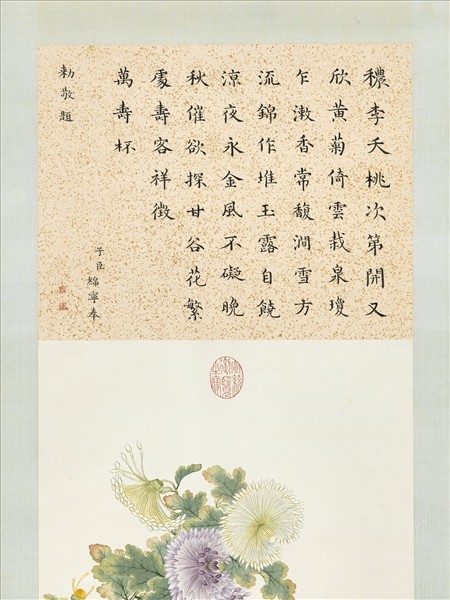 穠李夭桃次第開又
欣黃菊倚雲栽泉瓊
乍漱香常馥澗雪方
流錦作堆玉露自饒
涼夜永金風不礙晚
秋催欲探甘谷花繁
處壽客祥徵
萬壽杯
子臣綿寧奉
勅敬題